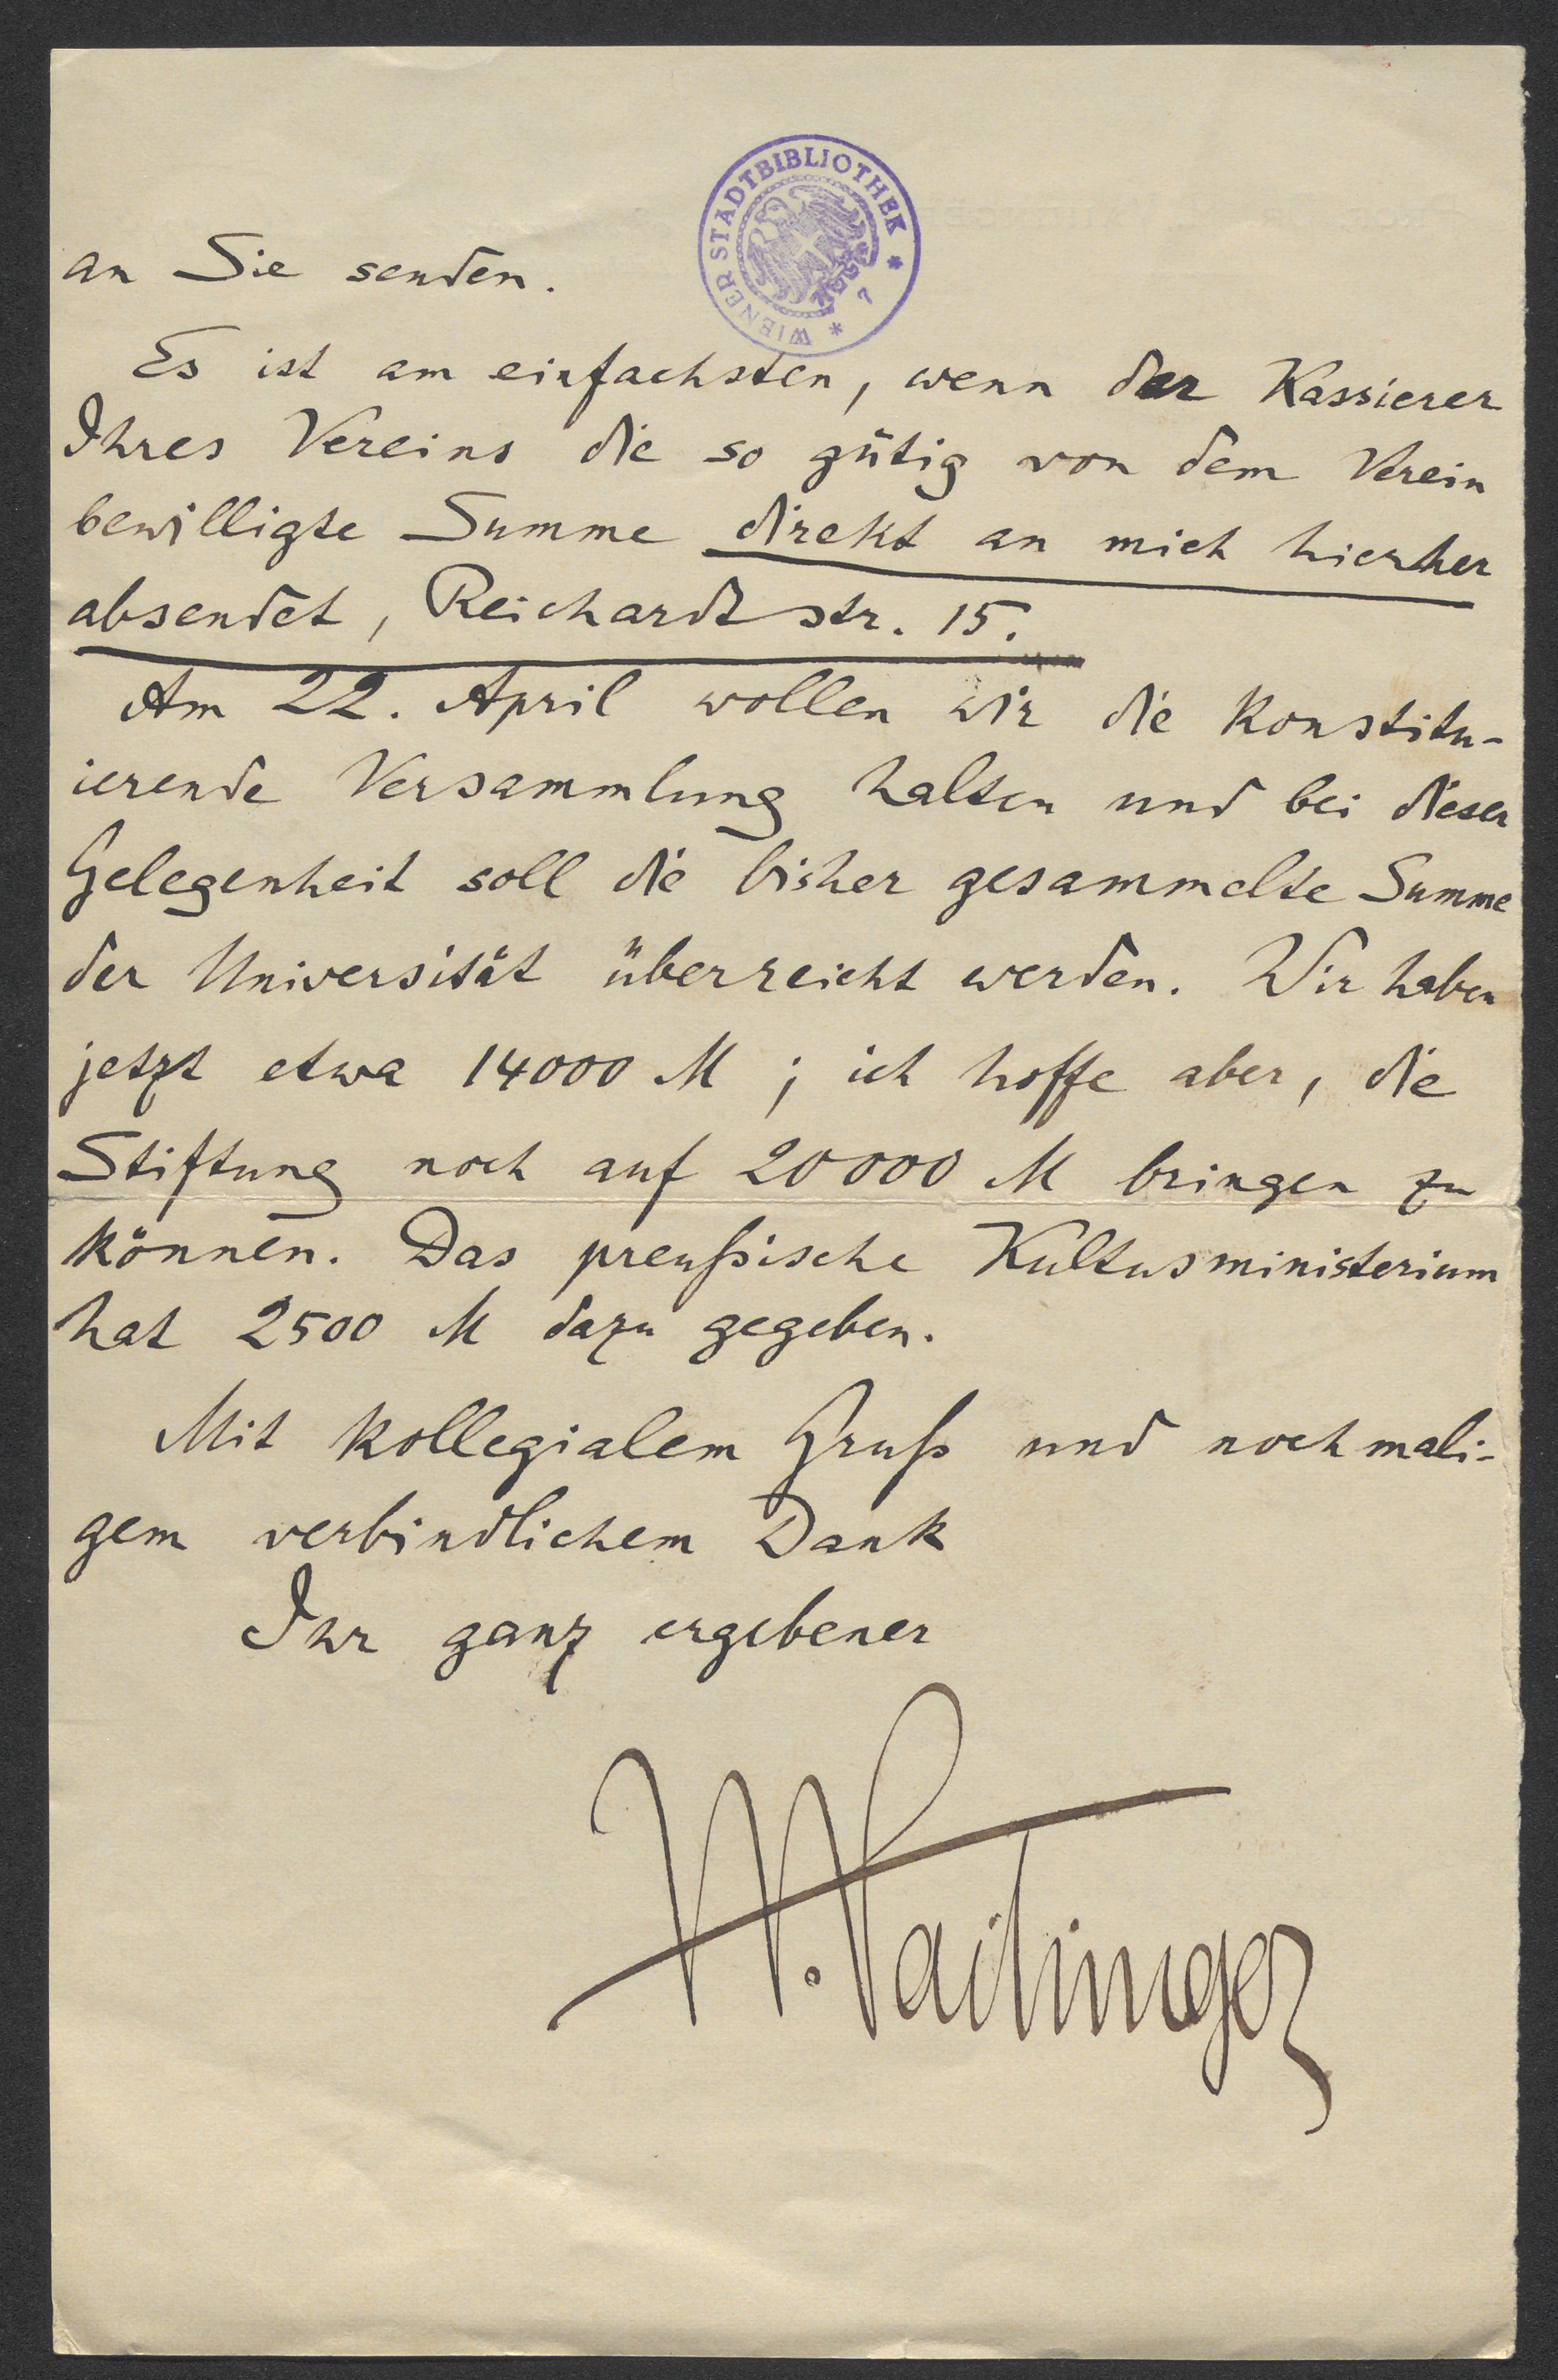 WIENER STADTBIBLIOTHEK * 7 *
an Sie senden.
Es ist am einfachsten, wenn der Kassierer
Ihres Vereins die so gütig von dem Verein
bewilligte Summe direkt an mich hierher
absendet, Reichardtstr. 15.
Am 22. April wollen wir die Konstitu-
ierende Versammlung halten und bei dieser
Gelegenheit soll die bisher gesammelte Summe
der Universität überreicht werden. Wir haben
jetzt etwa 14000 M ; ich hoffe aber, die
Stiftung noch auf 20000 M bringen zu
können. Das preußische Kultusministerium
hat 2500 M dazu gegeben.
Mit kollegialem Gruß und nochmali-
gem verbindlichem Dank
Ihr ganz ergebener
H. Vaihinger